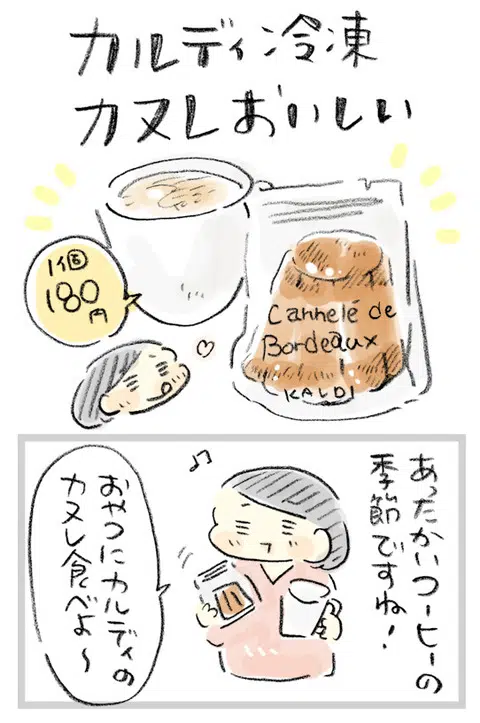 カルディ冷凍
カヌレおいしい
1個
180
円
Cannelé de
Bordeaux
KALDI
あったかいコーヒーの
季節ですね!
おやつにカルディの
カヌレ食べよ〜